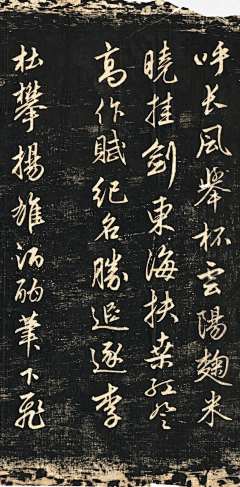 呼長風舉杯雲陽麹米
曉挂劍東海扶桒紅登
高作賦紀名勝追逐李
杜攀揚雄酒酣筆下飛